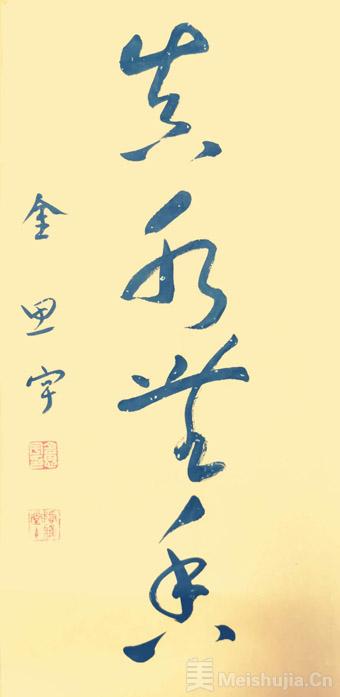 真水無香
金思宇
美 Meishujia.Cn